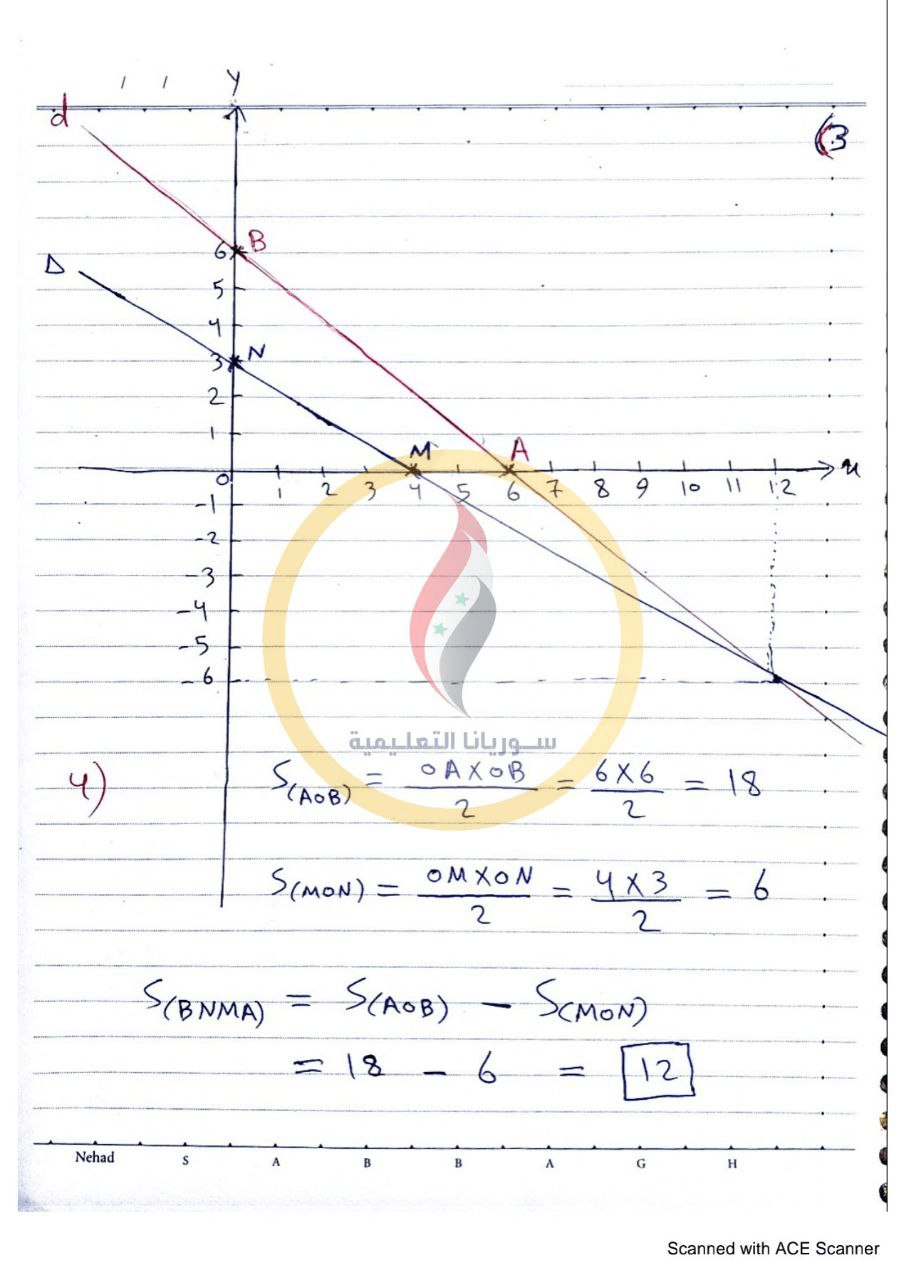 y
d
(3
6 B
Δ
5
4
3 N
2
1
M A
0 1 2 3 4 5 6 7 8 9 10 11 12 x
-1
-2
-3
-4
-5
-6
سوريانا التعليمية
4) S(AOB) = OA×OB / 2 = 6×6 / 2 = 18
S(MON) = OM×ON / 2 = 4×3 / 2 = 6
S(BNMA) = S(AOB) - S(MON)
= 18 - 6 = 12
Nehad S A B B A G H
Scanned with ACE Scanner